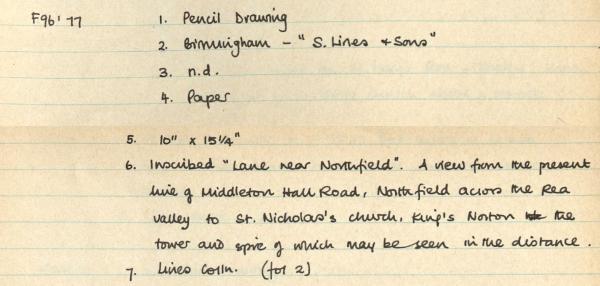 F96'77 1. Pencil Drawing
2. Birmingham - "S. Lines + Sons"
3. n.d.
4. Paper
5. 10" x 15 1/4"
6. Inscribed "Lane near Northfield". A view from the present
line of Middleton Hall Road, Northfield across the Rea
valley to St. Nicholas's church, King's Norton the
tower and spire of which may be seen in the distance.
7. Lines Colln. (for 2)